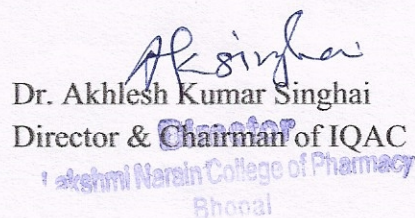 AKsinghai
Dr. Akhlesh Kumar Singhai
Director & Chairman of IQAC
Director
Lakshmi Narain College of Pharmacy
Bhopal